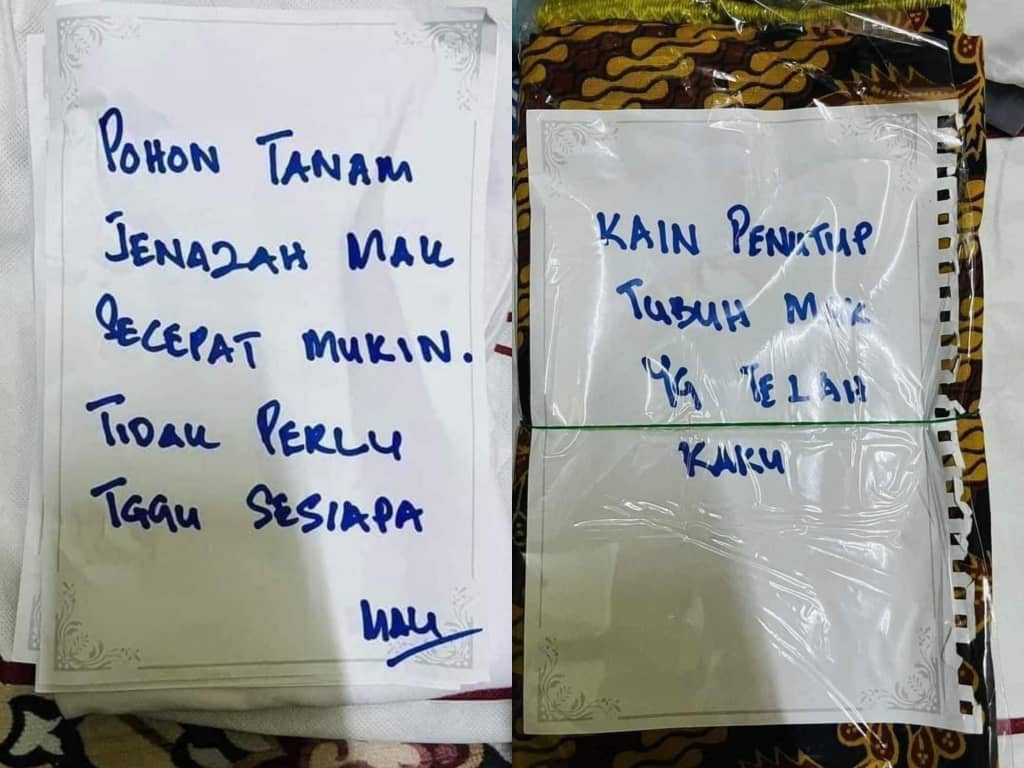 POHON TANAM
JENAZAH MAK
SECEPAT MUKIN.
TIDAK PERLU
TGGU SESIAPA
MAK
KAIN PENUTUP
TUBUH MAK
YG TELAH
KAKU